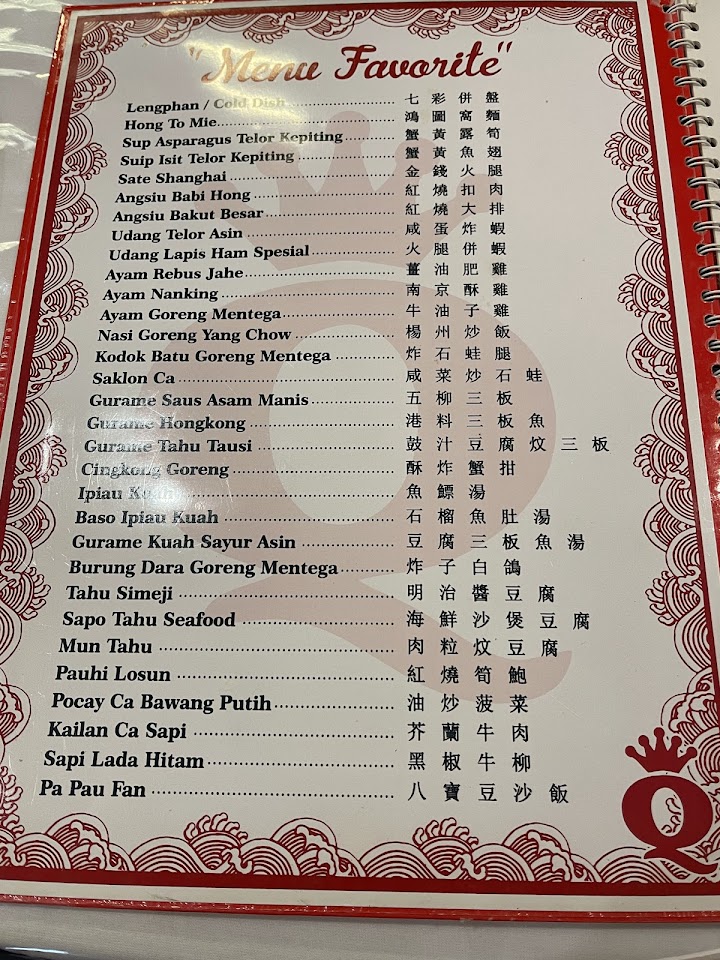 "Menu Favorite"
Lengphan / Cold Dish 七彩併盤
Hong To Mie 鴻圖窩麵
Sup Asparagus Telor Kepiting 蟹黃露筍
Suip Isit Telor Kepiting 蟹黃魚翅
Sate Shanghai 金錢火腿
Angsiu Babi Hong 紅燒扣肉
Angsiu Bakut Besar 紅燒大排
Udang Telor Asin 咸蛋炸蝦
Udang Lapis Ham Spesial 火腿併蝦
Ayam Rebus Jahe 薑油肥雞
Ayam Nanking 南京酥雞
Ayam Goreng Mentega 牛油子雞
Nasi Goreng Yang Chow 楊州炒飯
Kodok Batu Goreng Mentega 炸石蛙腿
Saklon Ca 咸菜炒石蛙
Gurame Saus Asam Manis 五柳三板
Gurame Hongkong 港料三板魚
Gurame Tahu Tausi 鼓汁豆腐炆三板
Cingkong Goreng 酥炸蟹拑
Ipiau Kuah 魚鰾湯
Baso Ipiau Kuah 石榴魚肚湯
Gurame Kuah Sayur Asin 豆腐三板魚湯
Burung Dara Goreng Mentega 炸子白鴿
Tahu Simeji 明治醬豆腐
Sapo Tahu Seafood 海鮮沙煲豆腐
Mun Tahu 肉粒炆豆腐
Pauhi Losun 紅燒筍鮑
Pocay Ca Bawang Putih 油炒菠菜
Kailan Ca Sapi 芥蘭牛肉
Sapi Lada Hitam 黑椒牛柳
Pa Pau Fan 八寶豆沙飯
Q